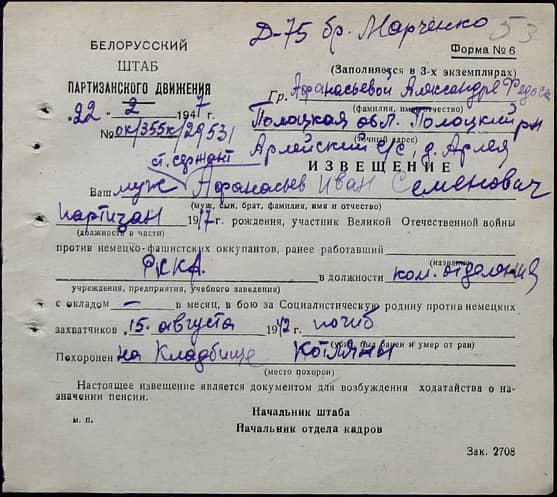 Д-75 бр. Марченко 53
БЕЛОРУССКИЙ
ШТАБ
ПАРТИЗАНСКОГО ДВИЖЕНИЯ
22 2 1947
№ ок/355к/29531
Форма № 6
(Заполняется в 3-х экземплярах)
Гр. Афанасьевой Александре Федос
(фамилия, имя, отчество)
Полоцкая обл. Полоцкий рн
(точный адрес)
Арлейский с/с, д. Арлея
ИЗВЕЩЕНИЕ
ст. сержант
Ваш муж Афанасьев Иван Семенович
(муж, сын, брат, фамилия, имя и отчество)
партизан 1917 рождения, участник Великой Отечественной войны
(должность в части)
против немецко-фашистских оккупантов, ранее работавший
(название
РККА в должности ком. отделения
учреждения, предприятия, учебного заведения)
с окладом — в месяц, в бою за Социалистическую родину против немецких
захватчиков 15 августа 1942 погиб
(убит, был ранен и умер от ран)
Похоронен на кладбище Котляны
(место похорон)
Настоящее извещение является документом для возбуждения ходатайства о на-
значении пенсии.
Начальник штаба
м. п.
Начальник отдела кадров
Зак. 2708